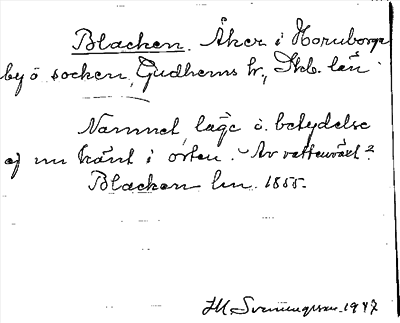 Blacken. Åker i Hornborga
by o socken, Gudhems hr., Skb. län
Namnet, läge o. betydelse
ej nu känt i orten. Av vattenväxt?
Blacken lm. 1855.
HM Svenungsson 1947